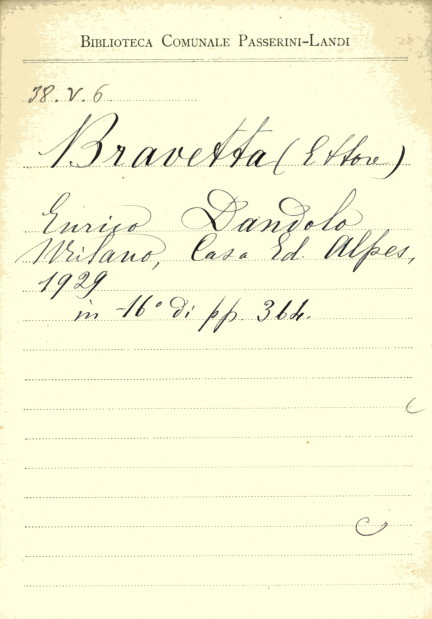 BIBLIOTECA COMUNALE PASSERINI-LANDI
38. V. 6
Bravetta (Ettore)
Enrico Dandolo
Milano, Casa Ed. Alpes,
1929
in -16° di pp. 364.